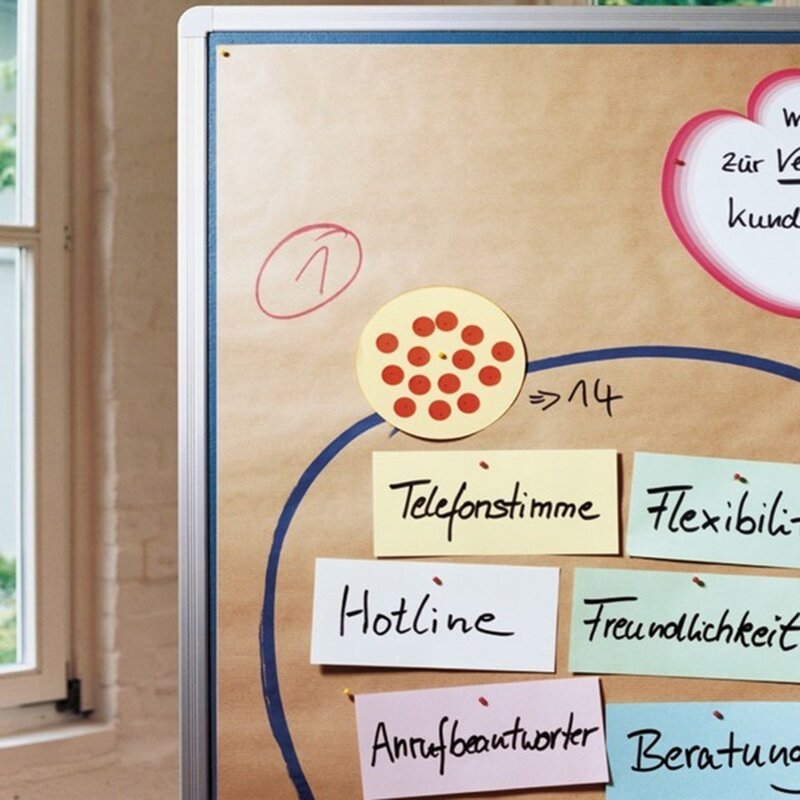 zür
kund
1
⇒ 14
Telefonstimme
Flexibili
Hotline
Freundlichkeit
Anrufbeantworter
Beratung